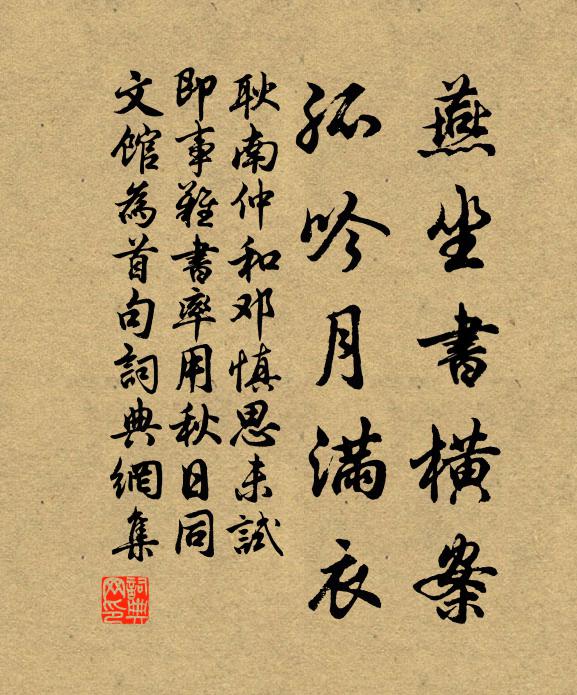 燕坐書橫案
孤吟月滿衣
耿南仲和邓慎思未試
即事雜書率用秋日同
文館為首句詞典網集
詞典網印